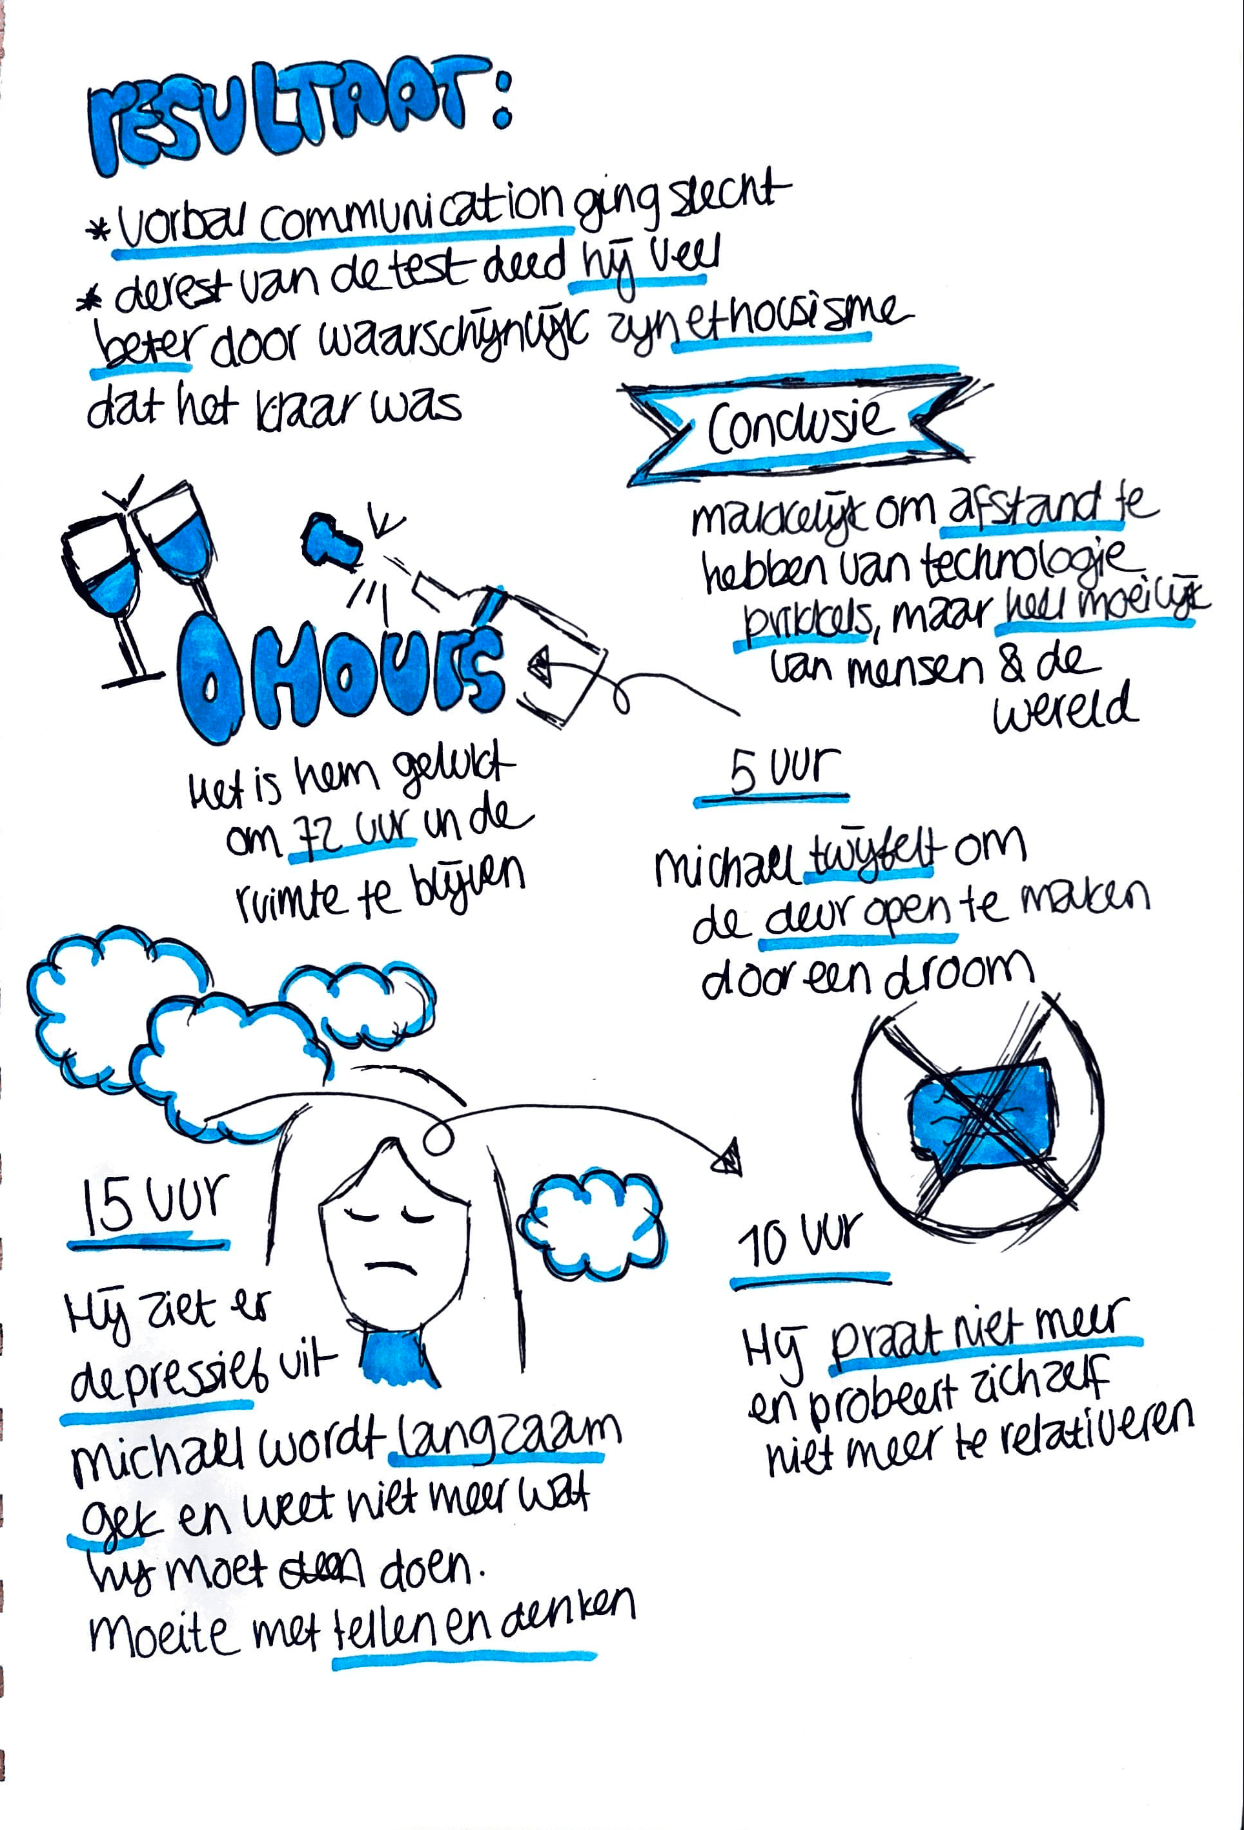 resultaat:
* vorbal communication ging slecht
* de rest van de test deed hij veel
beter door waarschijnlijk zijn ethousisme
dat het klaar was
Conclusie
makkelijk om afstand te
hebben van technologie
prikkels, maar heel moeilijk
van mensen & de
wereld
0 Hours
Het is hem gelukt
om 72 uur in de
ruimte te blijven
5 uur
michael twijfelt om
de deur open te maken
door een droom
10 uur
Hij praat niet meer
en probeert zichzelf
niet meer te relativeren
15 uur
Hij ziet er
depressief uit
michael wordt langzaam
gek en weet niet meer wat
hij moet doen.
Moeite met tellen en denken